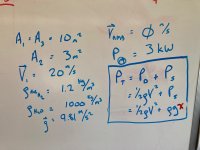 A₁ = A₃ = 10 m²
A₂ = 3 m²
V⃗₁ = 20 m/s
1.2 kg/m³
ρH₂O 1000 kg/m³
g⃗ = 9.81 m/s²
= 0 m/s
P = 3 kW
P_T = P_D + P_S
= ½ρV² + P_S
= ½ρV² + ρg